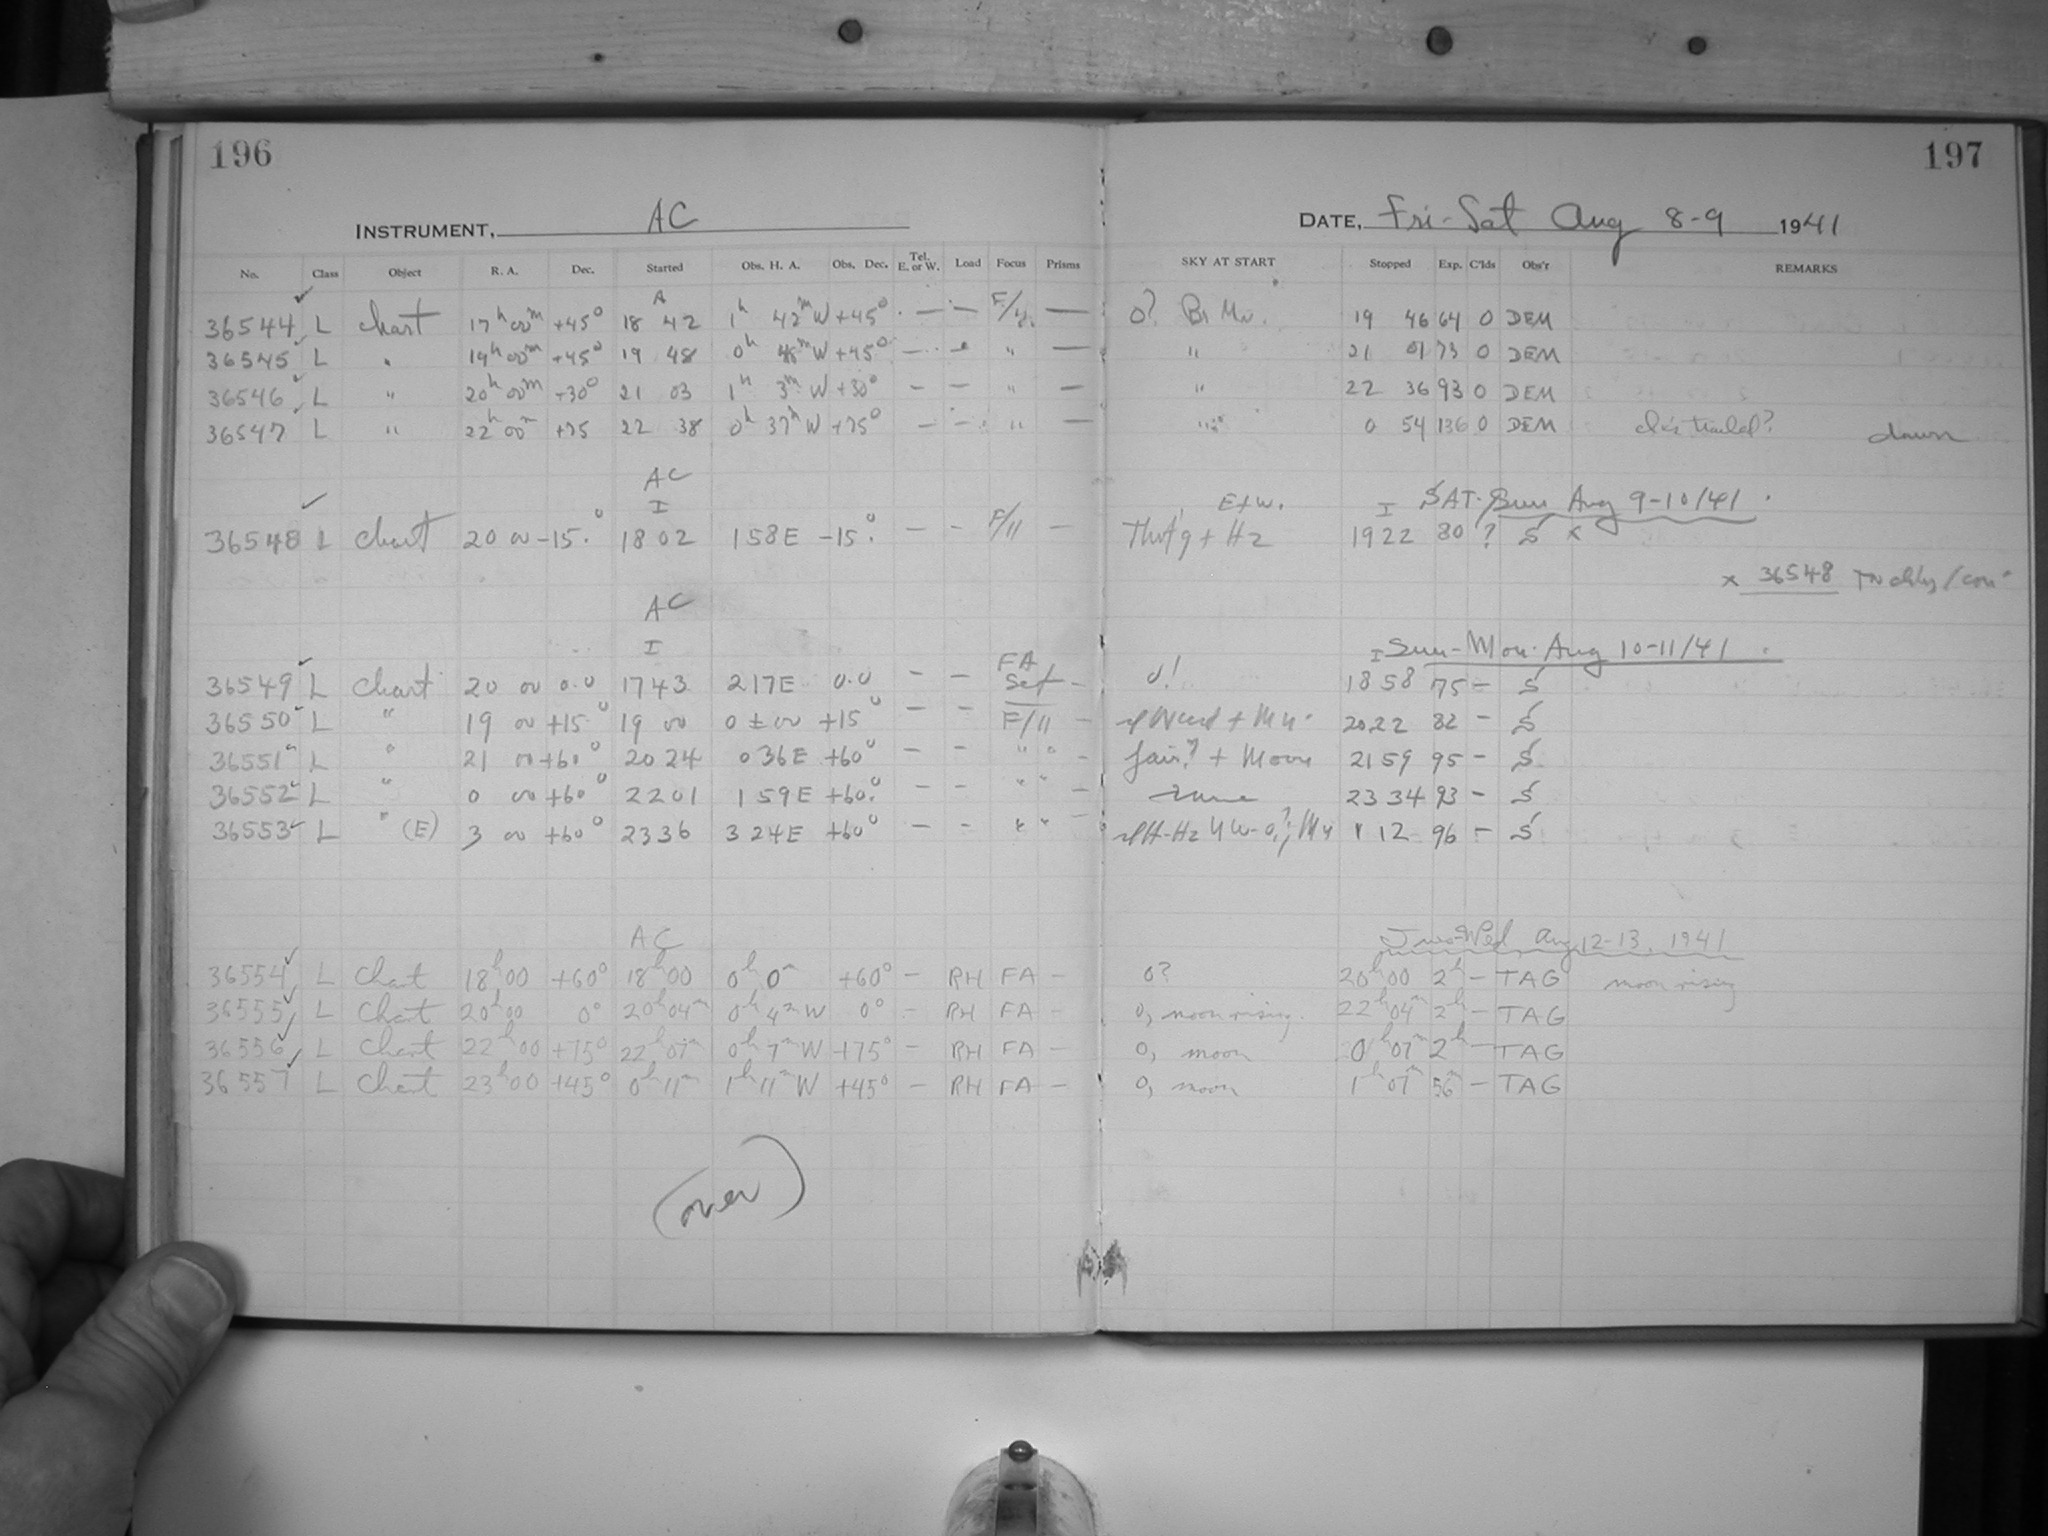 196
197
INSTRUMENT, AC
DATE, Fri-Sat Aug 8-9 1941
No. Class Object R. A. Dec. Started Obs. H. A. Obs. Dec. Tel. E. or W. Load Focus Prisms SKY AT START Stopped Exp. C'lds Obs'r REMARKS
36544 L chart 17h 00m +45° 18 42 1h 42m W +45° — — — 0? Br Mn. 19 46 64 0 DEM
36545 L " 19h 00m +45° 19 48 0h 48m W +45° — " — " 21 01 73 0 DEM
36546 L " 20h 00m +30° 21 03 1h 3m W +30° — — " — " 22 36 93 0 DEM
36547 L " 22h 00m +75 22 38 0h 37h W +75° — — " — " 0 54 136 0 DEM trailed? dawn
AC
I
E+W. I SAT-Sun Aug 9-10/41.
36548 L chart 20 00 -15.° 18 02 1 58 E -15.° — — F/11 — + Hz 19 22 80 ? S x
x 36548
AC
I
I Sun-Mon. Aug 10-11/41.
36549 L chart 20 00 0.0 17 43 2 17 E 0.0 — — FA Set — 0! 18 58 75 — S
36550 L " 19 00 +15° 19 00 0 ± 00 +15° — — F/11 — 20 22 82 — S
36551 L " 21 00 +60° 20 24 0 36 E +60° — — " " — fair? + Moon 21 59 95 — S
36552 L " 0 00 +60° 22 01 1 59 E +60.° — — " " — same 23 34 93 — S
36553 L " (E) 3 00 +60° 23 36 3 24 E +60° — — " " — 1 12 96 — S
AC
Tues-Wed, Aug 12-13, 1941
36554 L Chart 18h 00 +60° 18h 00 0h 0m +60° — RH FA — 0? 20h 00 2h — TAG moon rising
36555 L Chart 20h 00 0° 20h 04m 0h 4m W 0° — RH FA — 0, moon rising. 22h 04m 2h — TAG
36556 L Chart 22h 00 +75° 22h 07m 0h 7m W +75° — RH FA — 0, moon 0h 07m 2h — TAG
36557 L Chart 23h 00 +45° 0h 11m 1h 11m W +45° — RH FA — 0, moon 1h 07m 56m — TAG
(over)